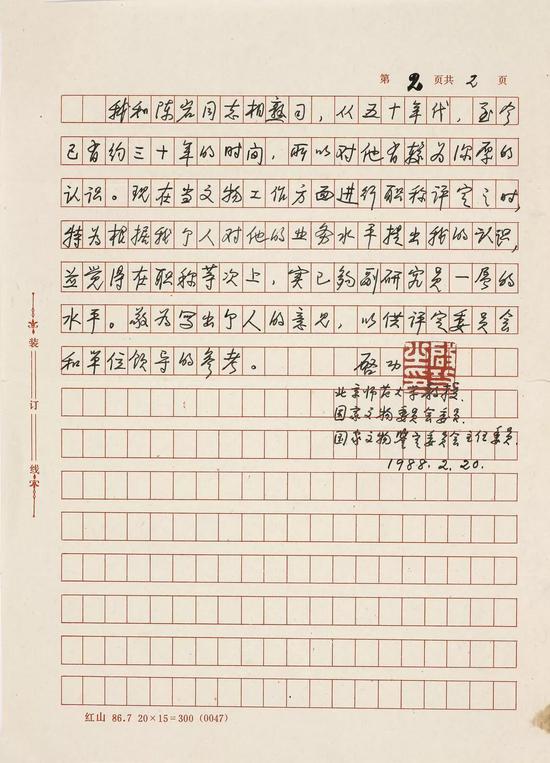 第 2 页共 2 页
我和陈岩同志相熟习，从五十年代，至今
已有约三十年的时间，所以对他有较为深厚的
认识。现在当文物工作方面进行职称评定之时，
特为根据我个人对他的业务水平提出我的认识，
并觉得在职称等次上，实已够副研究员一层的
水平。敬为写出个人的意见，以供评定委员会
和单位领导的参考。 启功
北京师范大学教授
国家文物委员会委员
国家文物鉴定委员会主任委员
1988.2.20.
装
订
线
红山 86.7 20×15=300 (0047)